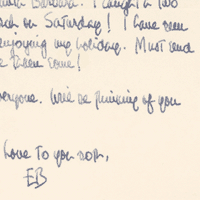 Barbara. I caught a two
on Saturday! I have been
enjoying my holiday. Must send
some!
everyone. We'll be thinking of you
Love to you both,
EB